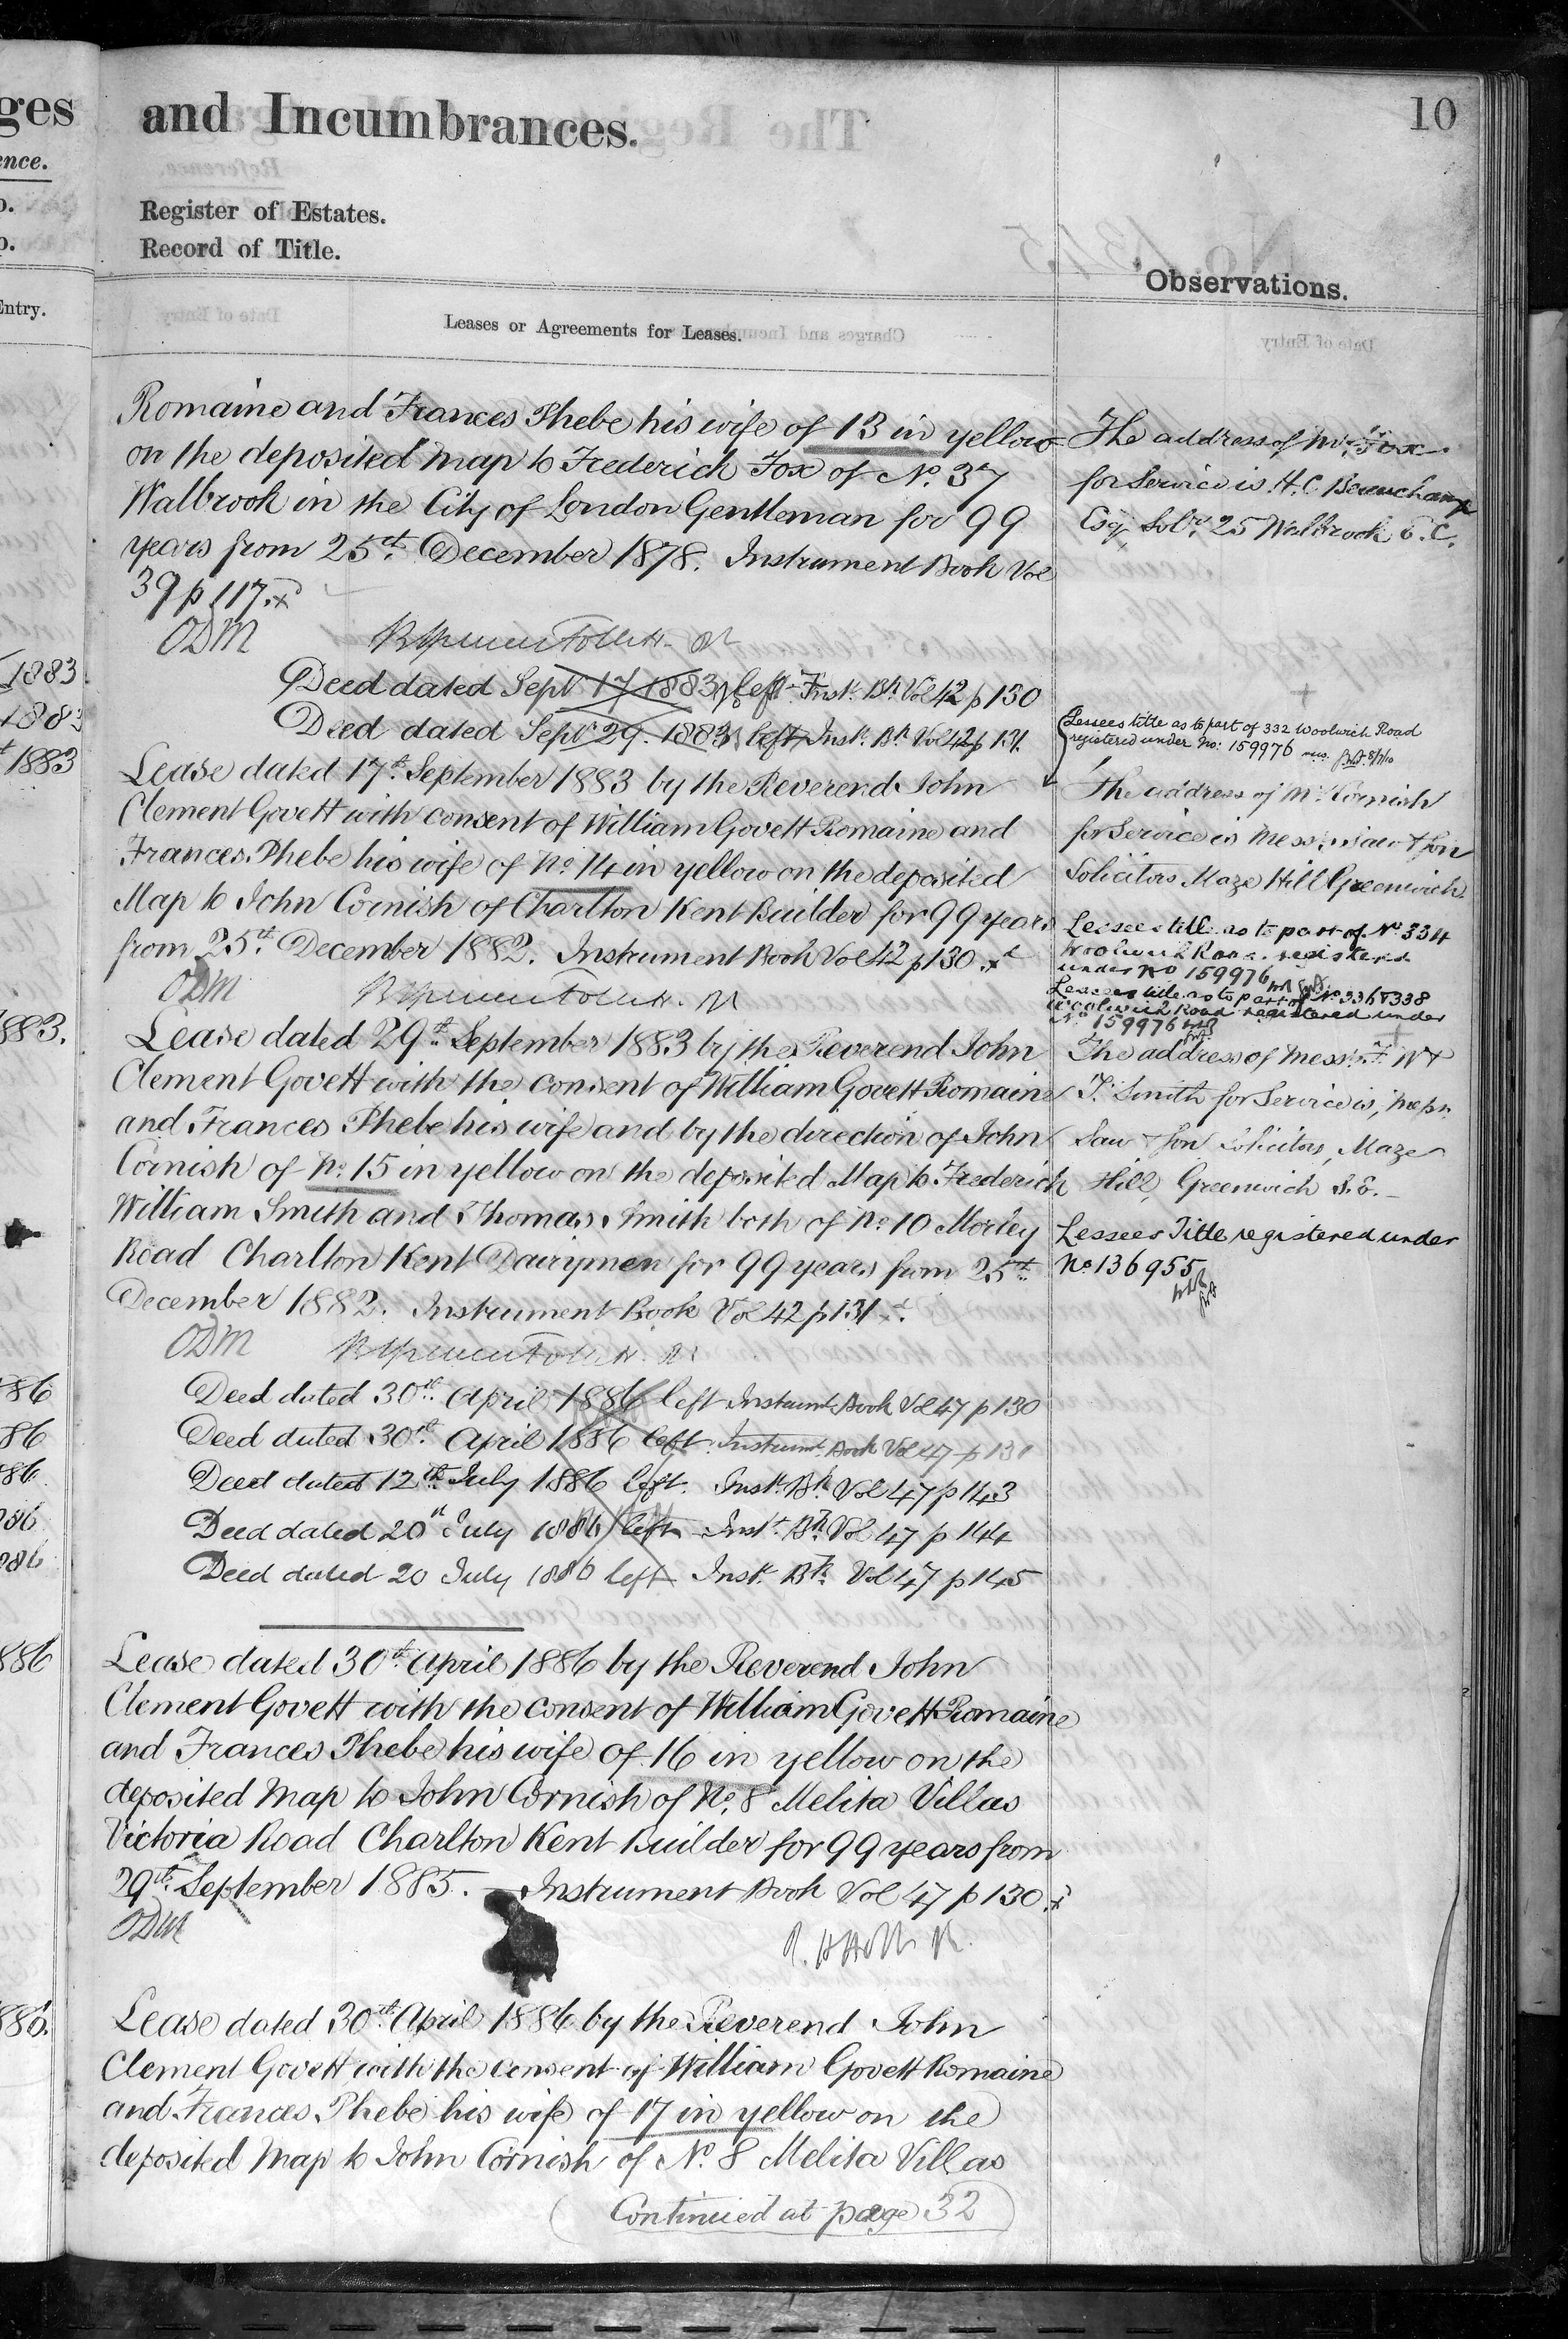 ges
and Incumbrances.
10
ence.
Register of Estates.
Record of Title.
Observations.
Entry.
Leases or Agreements for Leases.
Romaine and Frances Phebe his wife of 13 in yellow
on the deposited map to Frederick Fox of No. 37
Walbrook in the City of London Gentleman for 99
years from 25th December 1878. Instrument Book Vol
39 p 117.
ODM
The address of Mr. Fox
for Service is H.C. Beauchamp
Esq. Solr. 25 Walbrook E.C.
1883
Deed dated Sept 17 1883 left Inst. Bk Vol 42 p 130
1883
Deed dated Sept 29. 1883 left Inst. Bk Vol 42 p 131
Lessees title as to part of 332 Woolwich Road
registered under No: 159976
1883
Lease dated 17th September 1883 by the Reverend John
Clement Govett with consent of William Govett Romaine and
Frances Phebe his wife of No 14 in yellow on the deposited
Map to John Cornish of Charlton Kent Builder for 99 years
from 25th December 1882. Instrument Book Vol 42 p 130.
ODM
The address of Mr Cornish
for Service is Messrs Saw & Son
Solicitors Maze Hill Greenwich.
Lessees title as to part of No 334
Woolwich Road registered
under No 159976
Lessees title as to part of No 336 & 338
Woolwich Road registered under
No 159976
1883.
Lease dated 29th September 1883 by the Reverend John
Clement Govett with the consent of William Govett Romaine
and Frances Phebe his wife and by the direction of John
Cornish of No. 15 in yellow on the deposited Map to Frederick
William Smith and Thomas Smith both of No 10 Morley
Road Charlton Kent Dairymen for 99 years from 25th
December 1882. Instrument Book Vol 42 p 131
ODM
The address of Messrs F W &
T. Smith for Service is, Messrs
Saw & Son Solicitors, Maze
Hill, Greenwich S.E.
Lessees Title registered under
No 136955
86
Deed dated 30th April 1886 left Instrumt Book Vol 47 p 130
86
Deed dated 30th April 1886 left Instrumt Book Vol 47 p 131
86
Deed dated 12th July 1886 left. Inst. Bk Vol 47 p 143
Deed dated 20th July 1886 left Inst. Bk Vol 47 p 144
Deed dated 20 July 1886 left Inst. Bk Vol 47 p 145
886
Lease dated 30th April 1886 by the Reverend John
Clement Govett with the consent of William Govett Romaine
and Frances Phebe his wife of 16 in yellow on the
deposited Map to John Cornish of No. 8 Melita Villas
Victoria Road Charlton Kent Builder for 99 years from
29th September 1885. Instrument Book Vol 47 p 130.
ODM
886.
Lease dated 30th April 1886 by the Reverend John
Clement Govett with the consent of William Govett Romaine
and Frances Phebe his wife of 17 in yellow on the
deposited Map to John Cornish of No. 8 Melita Villas
(Continued at page 32)